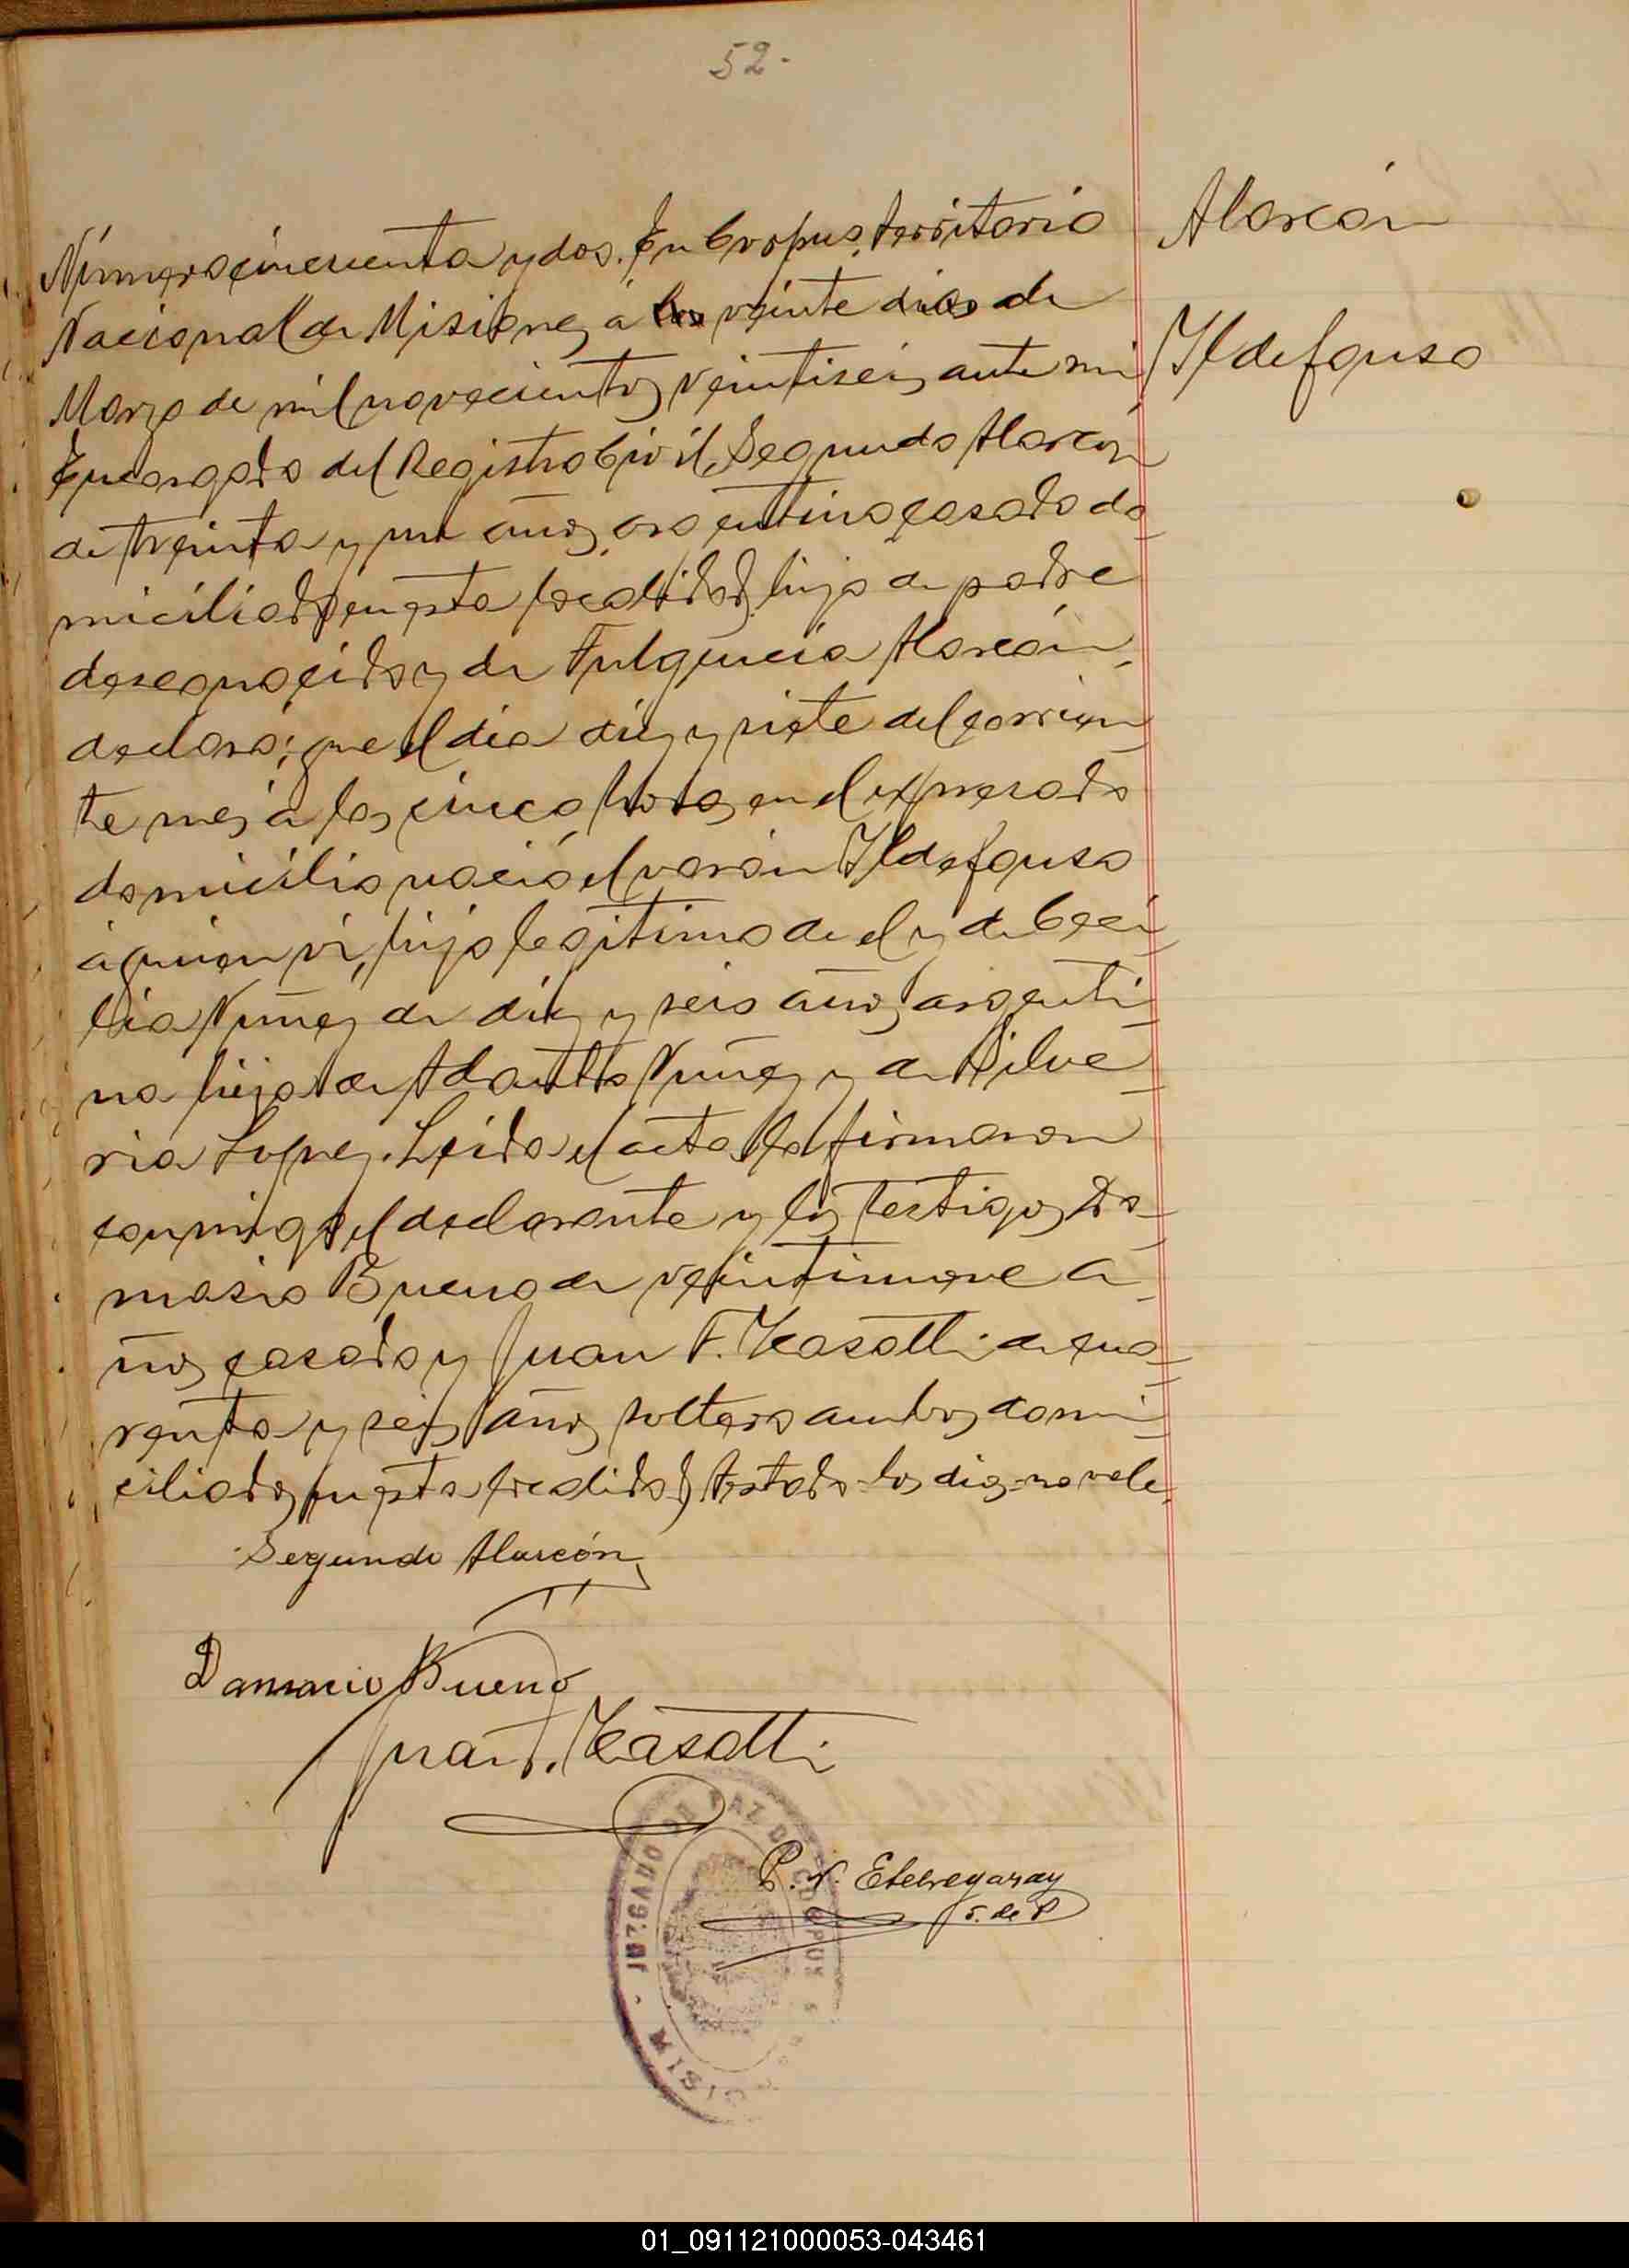 52.
Alarcón
Ildefonso
Número cincuenta y dos. En Corpus, territorio
Nacional de Misiones, á los veinte dias de
Marzo de mil novecientos veintiseis, ante mi
Encargado del Registro Civil, Segundo Alarcón
de treinta y un años, argentino casado do-
miciliado en esta localidad, hijo de padre
desconocido y de Fulgencia Alarcón,
declaró; que el dia diez y siete del corrien
te mes á las cinco horas en el expresado
domicilio nació el varón Ildefonso
á quien vi, hijo legítimo de el y de Ceci
lia Nuñez de diez y seis años, argenti
na hija de Adautto Nuñez y de Silve-
ria Lopez. Leida el acta la firmaron
conmigo el declarante y los testigos, Da-
masio Bueno de veintinueve a-
ños, casado y Juan F. Casatti de cua-
renta y seis años, soltero ambos domi
ciliados en esta localidad, testado-los dias-no vale.
Segundo Alarcón
Damacio Bueno
Juan F. Casatti
P. N. Etchegaray
J. de P
JUZGADO DE PAZ DE CORPUS
MISIO
01_091121000053-043461